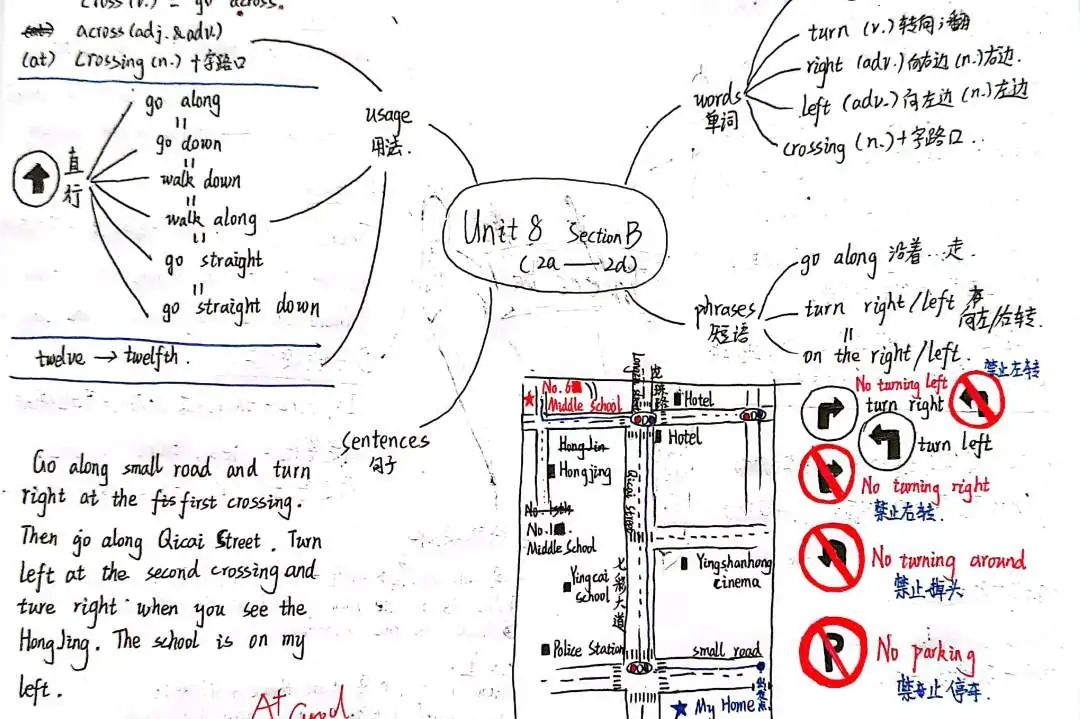 cross (v.) = go across.
across (adj. & adv.)
(at) Crossing (n.) 十字路口
usage
用法.
直行
go along
=
go down
=
walk down
=
walk along
=
go straight
=
go straight down
twelve → twelfth.
Unit 8 Section B
(2a — 2d)
words
单词
turn (v.) 转向;翻
right (adv.) 向右边 (n.) 右边.
left (adv.) 向左边 (n.) 左边
crossing (n.) 十字路口.
phrases
短语
go along 沿着…走
turn right/left 向左/右转.
=
on the right/left.
sentences
句子
Go along small road and turn
right at the fis first crossing.
Then go along Qicai Street. Turn
left at the second crossing and
ture right when you see the
HongJing. The school is on my
left.
A+ Good
No. 6
Middle School
龙珠路
Hotel
Hotel
HongJin
Hongjing
Qicai Street
七彩大道
No. 15th
No. 1
Middle School
Yingcai
school
Yingshanhong
cinema
Police Station
small road
My Home
出发点
禁止左转
No turning left
turn right
turn left
No turning right
禁止右转.
No turning around
禁止掉头
P
No parking
禁止停车.